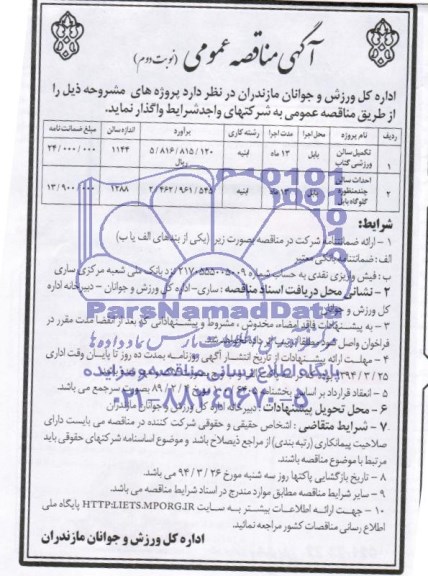 آگهی مناقصه عمومی (نوبت دوم)
اداره کل ورزش و جوانان مازندران در نظر دارد پروژه های مشروحه ذیل را
از طریق مناقصه عمومی به شرکتهای واجدشرایط واگذار نماید.
ردیف نام پروژه محل اجرا مدت اجرا رشته کاری برآورد اندازه سالن مبلغ ضمانت نامه
۱ تکمیل سالن ورزشی کتاب بابل ۱۳ ماه ابنیه ۵/۸۱۶/۸۱۵/۱۲۰ ریال ۱۱۴۴ ۲۴/۰۰۰/۰۰۰
۲ احداث سالن چندمنظوره گلوگاه بابل بابل ۱۳ ماه ابنیه ۲/۴۶۲/۹۶۱/۵۴۵ ۱۲۸۸ ۱۳/۹۰۰/۰۰۰
شرایط:
۱ - ارائه ضمانتنامه شرکت در مناقصه بصورت زیر (یکی از بندهای الف یا ب)
الف: ضمانتنامه بانکی معتبر
ب: فیش واریزی نقدی به حساب شماره ۲۱۷۰۵۵۵۰۰۵۰۰۹ نزد بانک ملی شعبه مرکزی ساری
۲ - نشانی محل دریافت اسناد مناقصه: ساری - اداره کل ورزش و جوانان - دبیرخانه اداره
کل ورزش و جوانان
۳ - به پیشنهادات فاقد امضاء، مخدوش، مشروط و پیشنهاداتی که بعد از انقضاء مدت مقرر در
فراخوان واصل شود مطلقا ترتیب اثر داده نخواهد شد.
۴ - مهلت ارائه پیشنهادات از تاریخ انتشار آگهی روزنامه بمدت ده روز تا پایان وقت اداری
۱۳۹۴/۳/۲۵
۵ - انعقاد قرارداد بر اساس بخشنامه ۸۹/۲/۲ بصورت سرجمع می باشد.
۶ - محل تحویل پیشنهادات: دبیرخانه اداره کل ورزش و جوانان مازندران
۷ - شرایط متقاضی: اشخاص حقیقی و حقوقی شرکت کننده در مناقصه می بایست دارای
صلاحیت پیمانکاری (رتبه بندی) از مراجع ذیصلاح باشد و موضوع اساسنامه شرکتهای حقوقی باید
مرتبط با موضوع مناقصه باشند.
۸ - تاریخ بازگشایی پاکتها روز سه شنبه مورخ ۹۴/۳/۲۶ می باشد.
۹ - سایر شرایط مناقصه مطابق موارد مندرج در اسناد شرایط مناقصه می باشد.
۱۰ - جهت ارائه اطلاعات بیشتر به سایت HTTP:LIETS.MPORG.IR پایگاه ملی
اطلاع رسانی مناقصات کشور مراجعه نمائید.
اداره کل ورزش و جوانان مازندران
ParsNamadData
پایگاه اطلاع رسانی مناقصه و مزایده
۰۲۱-۸۸۳۴۹۶۷۰-۵